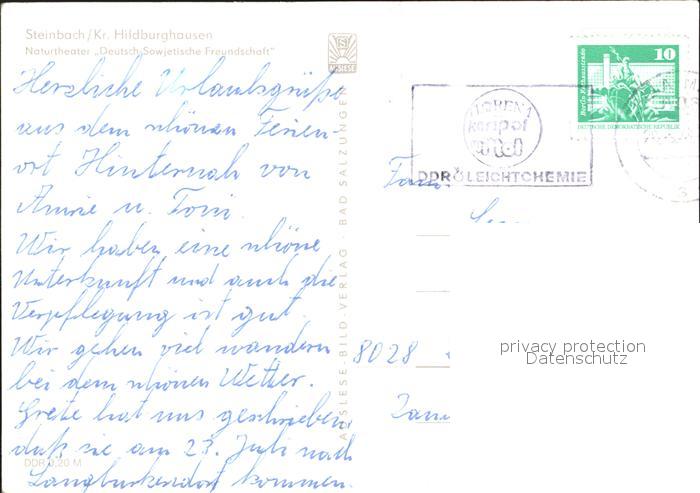 Steinbach/Kr. Hildburghausen
Naturtheater „Deutsch-Sowjetische Freundschaft"
Herzliche Urlaubsgrüße
aus dem schönen Ferien-
ort Hinternah von
Annie u. Toni.
Wir haben eine schöne
Unterkunft und auch die
Verpflegung ist gut.
Wir gehen viel wandern
bei dem schönen Wetter.
Grete hat uns geschrieben,
daß sie am 23. Juli nach
Langburkersdorf kommen.
DDR 0,20 M
AUSLESE-BILD-VERLAG · BAD SALZUNGEN
AUSLESE
FLORENA
DDR LEICHTCHEMIE
10
Berlin Rathausstraße
DEUTSCHE DEMOKRATISCHE REPUBLIK
Fam.
8028
privacy protection
Datenschutz